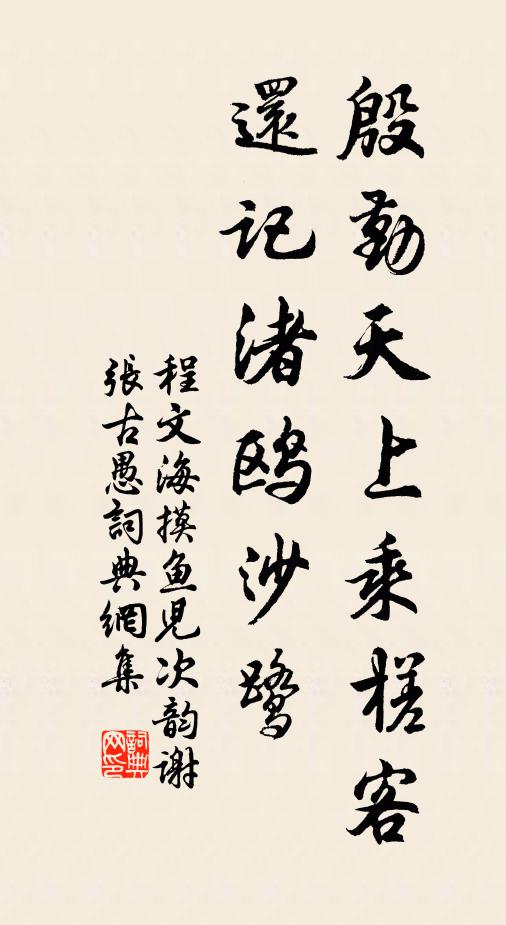 殷勤天上乘槎客
還記渚鷗沙鷺
程文海摸鱼児次韵謝
張古愚詞典網集
詞典网印